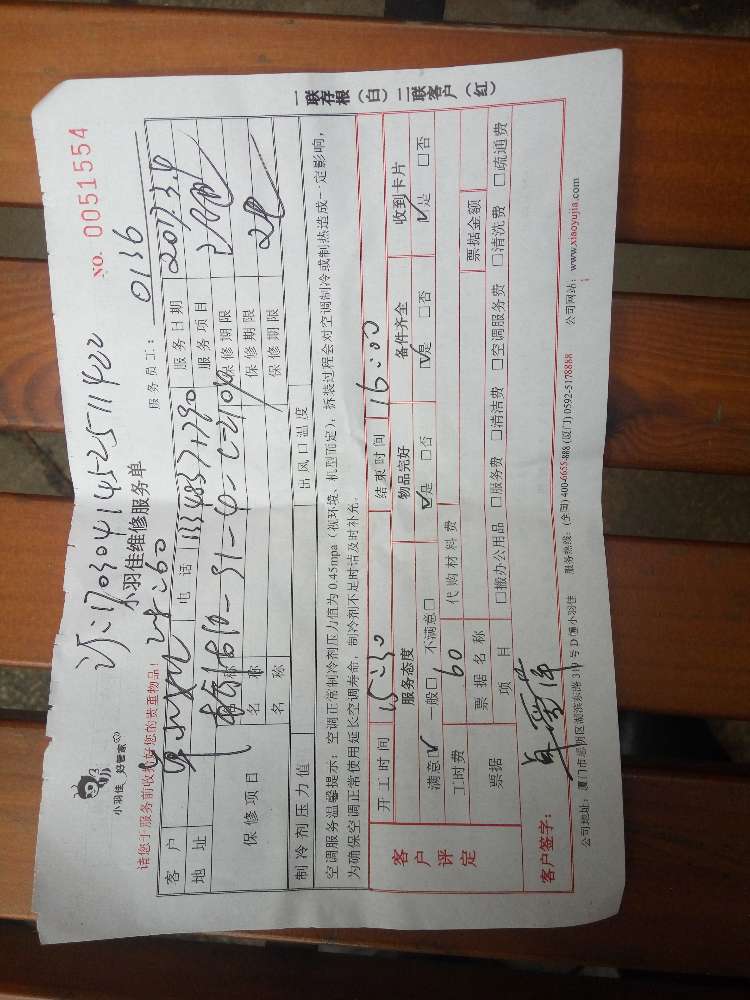 一联存根（白）二联客户（红）
NO. 0051554
小羽佳 好管家
小羽佳维修服务单
服务员工： 0136
请您于服务前收好您的贵重物品！
客户 电话 服务日期 2017.3.4
地址 服务项目
保修项目 名称 保修期限
名称 保修期限
名称 保修期限
制冷剂压力值 出风口温度
空调服务温馨提示：空调正常制冷剂压力值为 0.45mpa（视环境、机型而定），拆装过程会对空调制冷或制热造成一定影响，
为确保空调正常使用延长空调寿命，制冷剂不足时请及时补充。
开工时间 15:30 结束时间 16:00
客户评定 服务态度 物品完好 备件齐全 收到卡片
满意☑ 一般□ 不满意□ ☑是 □否 ☑是 □否 ☑是 □否
工时费 60 代购材料费
票据 票据名称 票据金额
项目 □搬办公用品 □服务费 □清洁费 □空调服务费 □清洗费 □疏通费
客户签字：
公司地址：厦门市思明区湖滨东路 319 号 D 幢小羽佳 服务热线：(全国) 400-6655-888 (厦门) 0592-5178888 公司网站：www.xiaoyujia.com